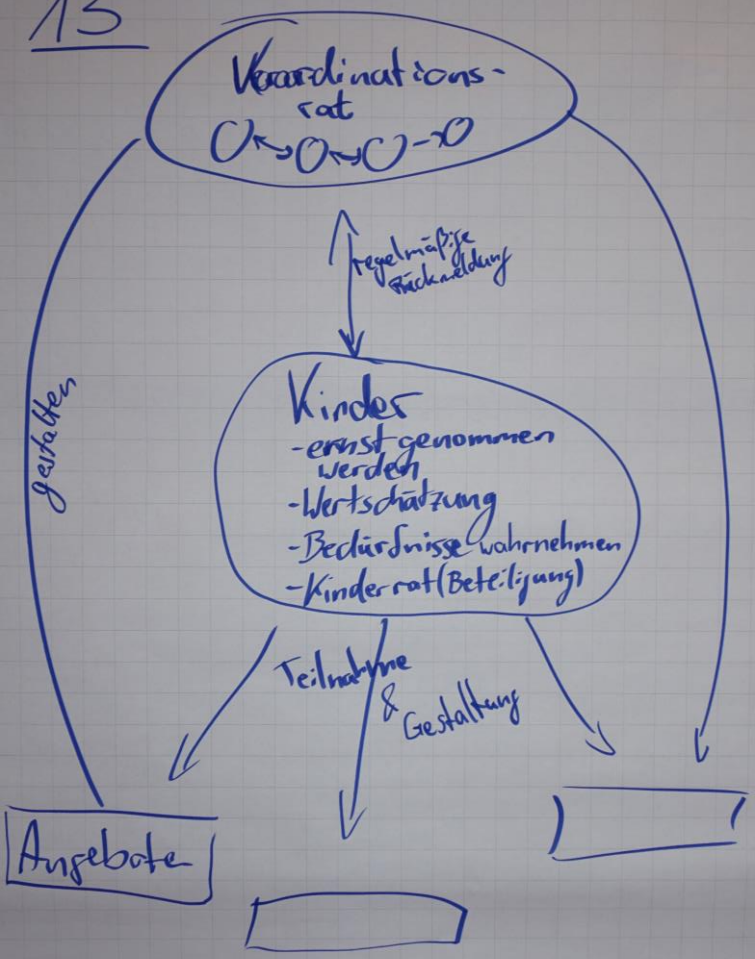 13
Koordinations-
rat
regelmäßige
Rückmeldung
Kinder
-ernst genommen
werden
-Wertschätzung
-Bedürfnisse wahrnehmen
-Kinderrat (Beteiligung)
gestalten
Teilnahme
&
Gestaltung
Angebote